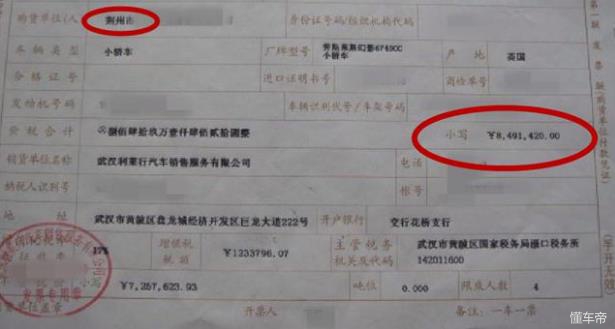 购货单位(人 荆州市 身份证号码/组织机构代码
车辆类型 小轿车 厂牌型号 劳斯莱斯幻影6749CC 小轿车 产地 英国
合格证号 进口证明书号 商检单号
发动机号码 车辆识别代号/车架号码
价税合计 ⊗捌佰肆拾玖万壹仟肆佰贰拾圆整 小写 ¥8,491,420.00
销货单位名称 武汉利莱行汽车销售服务有限公司 电话
纳税人识别号 帐号
地址 武汉市黄陂区盘龙城经济开发区巨龙大道222号 开户银行 交行花桥支行
17% 增值税税额 ¥1233796.07 主管税务机关及代码 武汉市黄陂区国家税务局滠口税务所 142011600
¥7,257,623.93 吨位 0.000 限乘人数 4
单位盖章 开票人 备注:一车一票
发票专用章
第一联 发票联(购货单位付款凭证)
(手开无效)
懂车帝